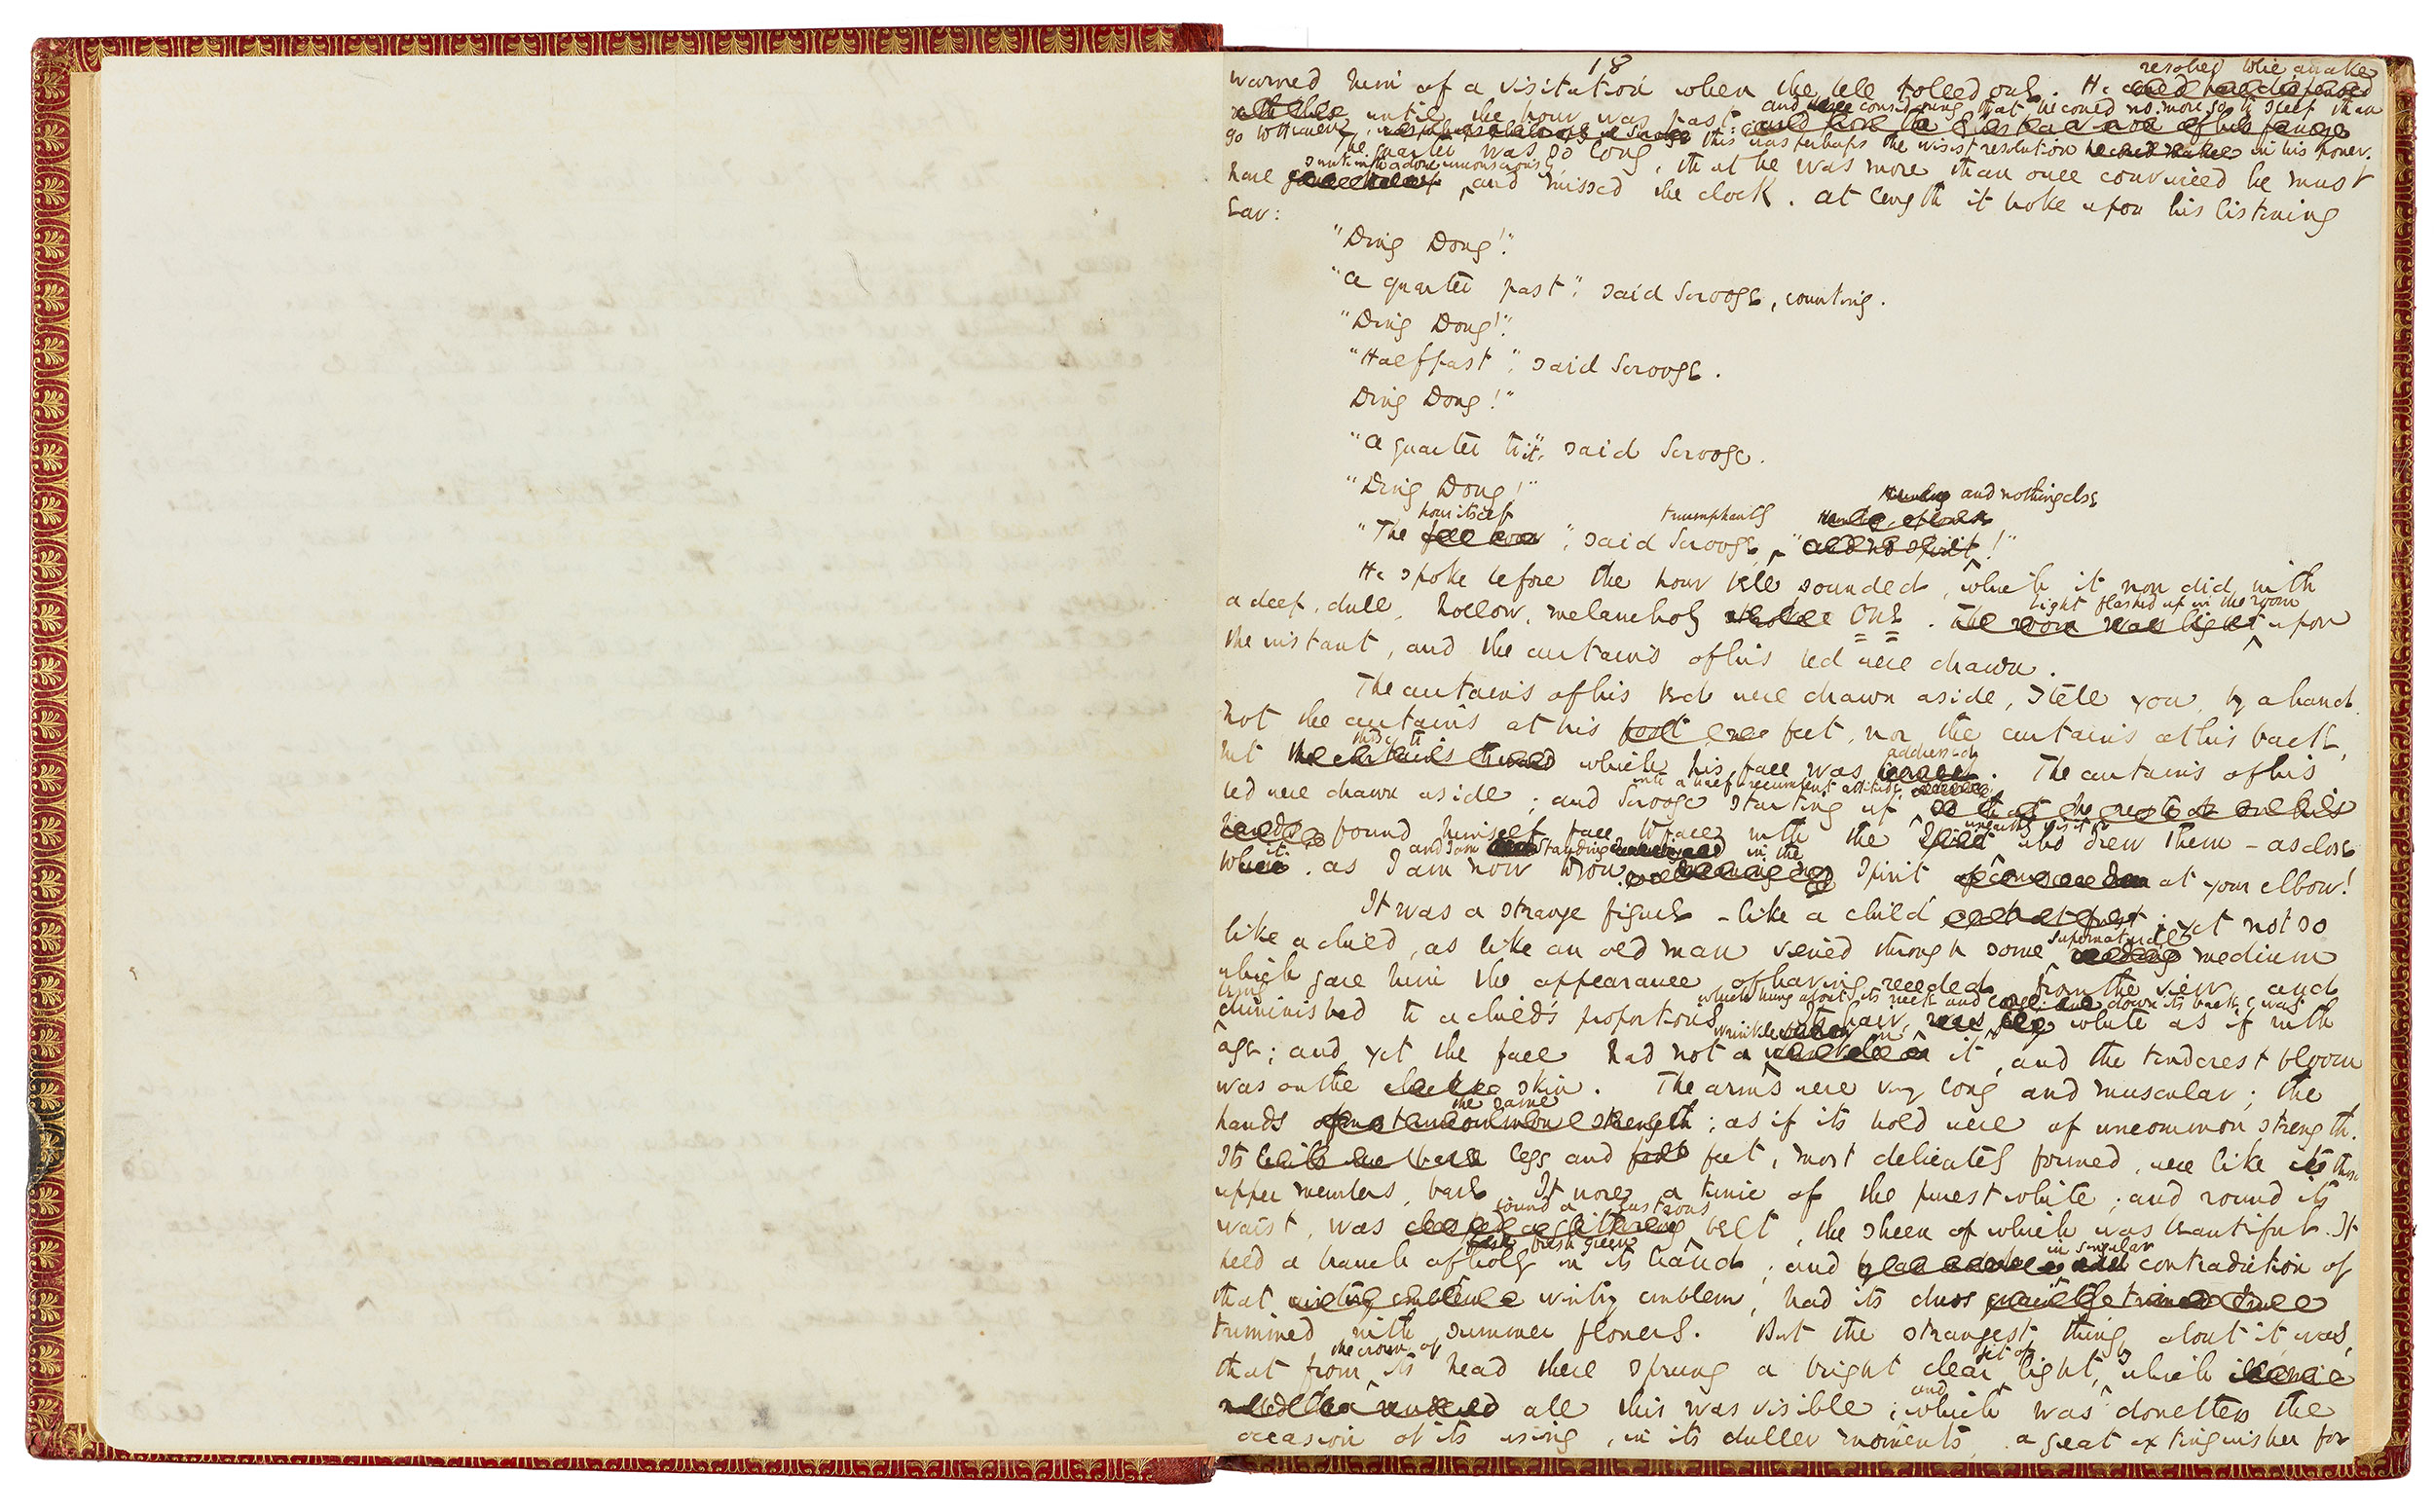 18
resolved to lie awake
warned him of a visitation when the bell tolled one. He
until the hour was past; and considering that he could no more go to sleep than
go to Heaven, this was perhaps the wisest resolution in his power.
The quarter was so long, that he was more than once convinced he must
sunk into a doze unconsciously,
have and missed the clock. At length it broke upon his listening
ear:
"Ding Dong!"
"A quarter past", said Scrooge, counting.
"Ding Dong!"
"Half past", said Scrooge.
Ding Dong!"
"A quarter to it", said Scrooge.
"Ding Dong!"
and nothing else
hour itself triumphantly
"The ", said Scrooge, " !"
He spoke before the hour bell sounded, which it now did with
a deep, dull, hollow, melancholy ONE. Light flashed up in the room upon
the instant, and the curtains of his bed were drawn.
The curtains of his bed were drawn aside, I tell you, by a hand.
Not the curtains at his feet, nor the curtains at his back,
but those to which his face was addressed. The curtains of his
bed were drawn aside; and Scrooge starting up into a half recumbent attitude,
found himself face to face with the unearthly visitor who drew them - as close
to it as I am now to you, and I am standing in the Spirit at your elbow!
It was a strange figure - like a child ; yet not so
like a child, as like an old man viewed through some supernatural medium
which gave him the appearance of having receded from the view, and
being
diminished to a child's proportions. Its hair, which hung about its neck and down its back, was white as if with
age; and yet the face had not a wrinkle in it, and the tenderest bloom
was on the skin. The arms were very long and muscular; the
hands the same; as if its hold were of uncommon strength.
Its legs and feet, most delicately formed, were like those
upper members, bare. It wore a tunic of the purest white; and round its
waist, was bound a lustrous belt, the sheen of which was beautiful. It
held a branch of fresh green holly in its hand; and in singular contradiction of
that wintry emblem, had its dress
trimmed with summer flowers. But the strangest thing about it was,
that from the crown of its head there sprung a bright clear jet of light, by which
all this was visible; and which was doubtless the
occasion of its using, in its duller moments, a great extinguisher for